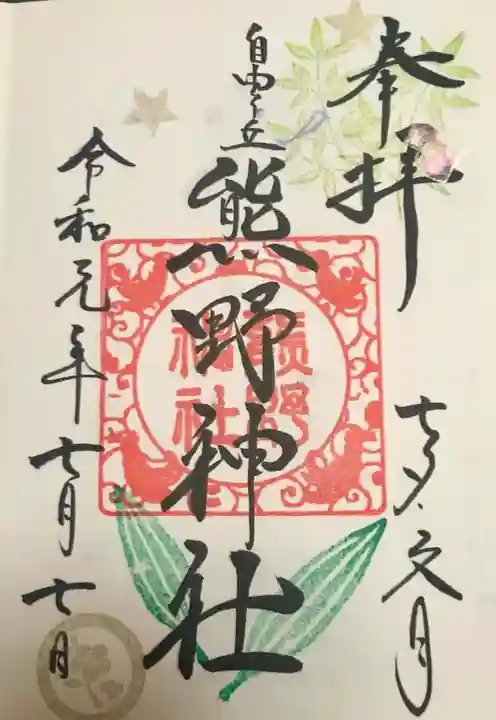 奉拝
七夕、文月
自由ヶ丘
熊野神社
熊野
神社
令和元年七月七日